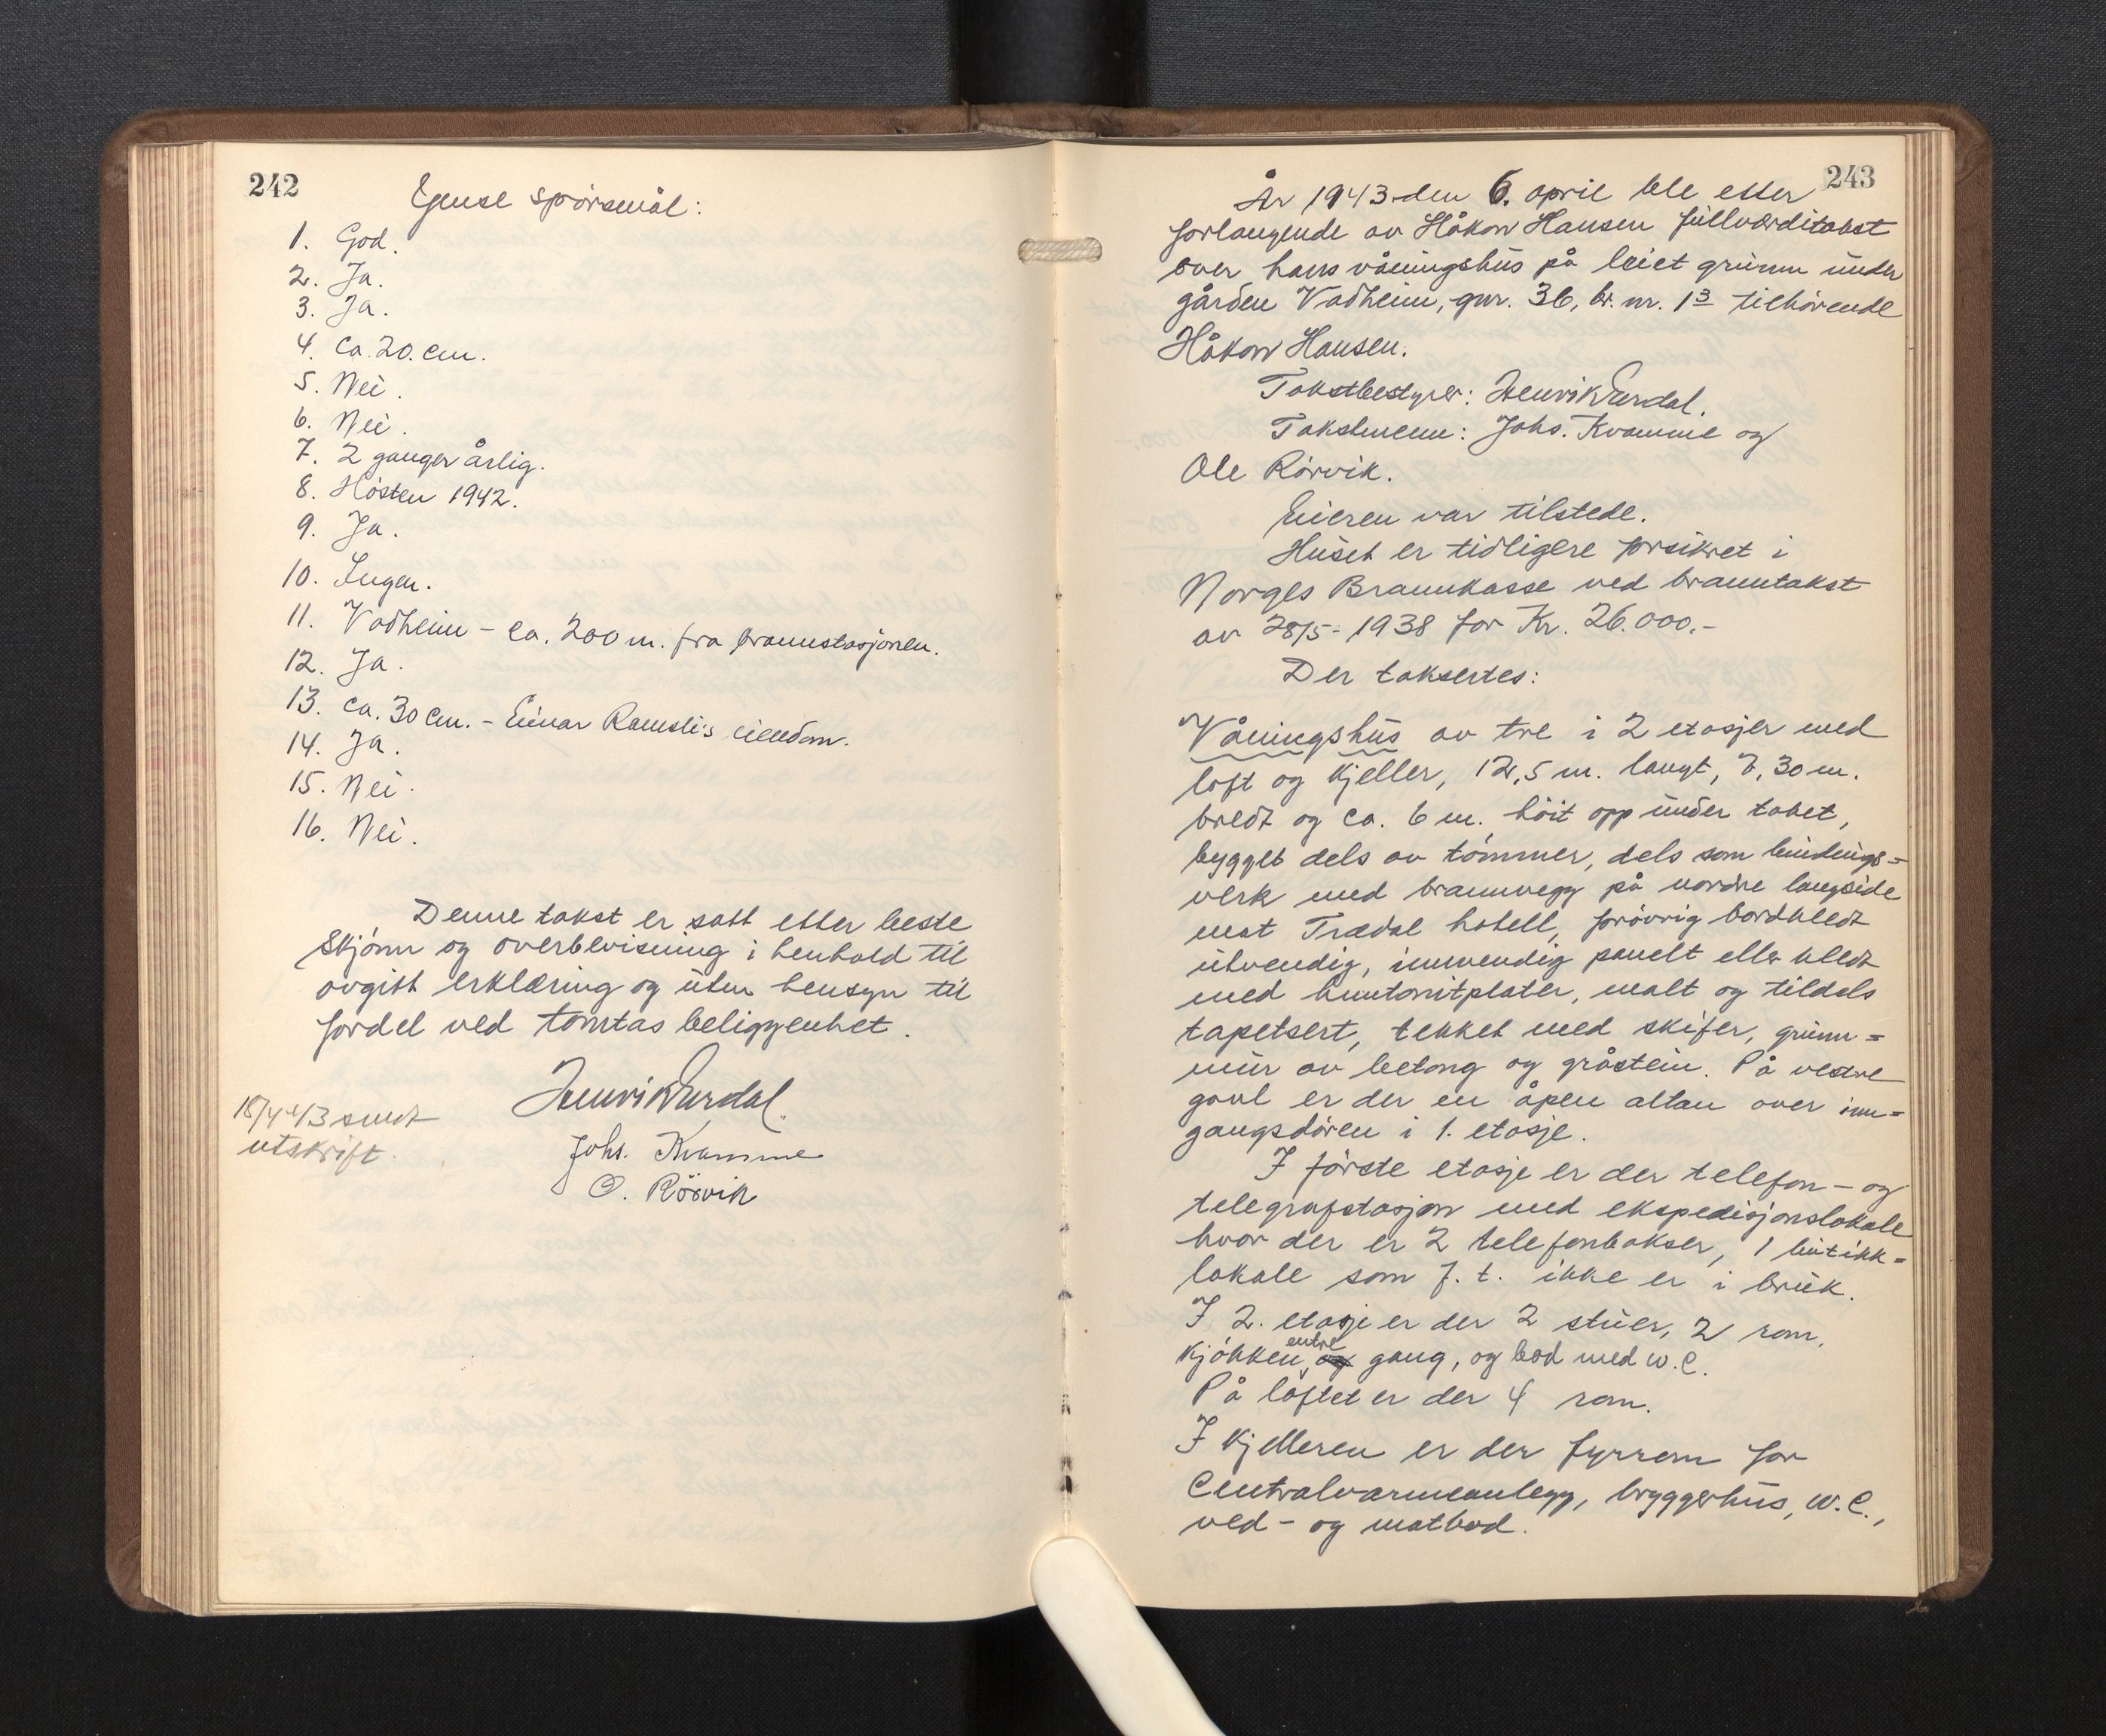 242
Ymse spørsmål:
1. God.
2. Ja.
3. Ja.
4. ca. 20. cm.
5. Nei.
6. Nei.
7. 2 ganger årlig.
8. Høsten 1942.
9. Ja.
10. Ingen.
11. Vadheim - ca. 200 m. fra brannstasjonen.
12. Ja.
13. ca. 30 cm. - Einar Ramsli's eiendom.
14. Ja.
15. Nei.
16. Nei.
Denne takst er satt etter beste
skjønn og overbevisning i henhold til
avgitt erklæring og uten hensyn til
fordel ved tomtas beliggenhet.
Henrik Eurdal.
Johs. Kvamme
O. Rörvik
18/4 43 sendt
utskrift.
243
År 1943 den 6. april ble etter
forlangende av Håkon Hansen fullverditakst
over hans våningshus på leiet grunn under
gården Vadheim, gnr. 36, br. nr. 13 tilhørende
Håkon Hansen.
Takstbestyrer: Henrik Eurdal.
Takstmenn: Johs. Kvamme og
Ole Rörvik.
Eieren var tilstede.
Huset er tidligere forsikret i
Norges Brannkasse ved branntakst
av 28/5 - 1938 for Kr. 26.000.-
Der taksertes:
Våningshus av tre i 2 etasjer med
loft og kjeller, 12,5 m. langt, 8,30 m.
bredt og ca. 6 m. høit opp under taket,
bygget dels av tømmer, dels som bindings=
verk med brannvegg på nordre langside
mot Trædal hotell, forøvrig bordkledt
utvendig, innvendig panelt eller kledt
med huntonitplater, malt og tildels
tapetsert, tekket med skifer, grunn=
mur av betong og gråstein. På vestre
gavl er der en åpen altan over inn=
gangsdøren i 1. etasje.
I første etasje er der telefon- og
telegrafstasjon med ekspedisjonslokale
hvor der er 2 telefonbokser, 1 butikk=
lokale som f. t. ikke er i bruk.
I 2. etasje er der 2 stuer, 2 rom,
kjøkken, entre og gang, og bod med w.c.
På loftet er der 4 rom.
I kjelleren er der fyrrom for
Centralvarmeanlegg, bryggerhus, w.c.,
ved- og matbod.